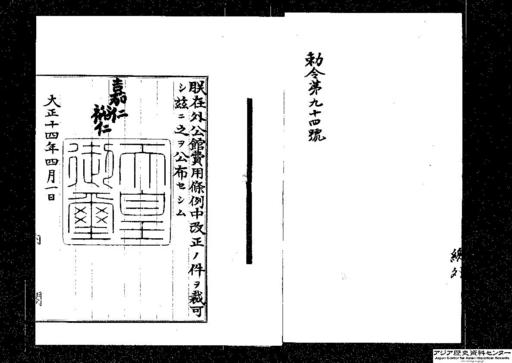 勅令第九十四號
朕在外公館費用條例中改正ノ件ヲ裁可
シ玆ニ之ヲ公布セシム
嘉仁
裕仁
天皇御璽
大正十四年四月一日
内閣
アジア歴史資料センター
Japan Center for Asian Historical Records